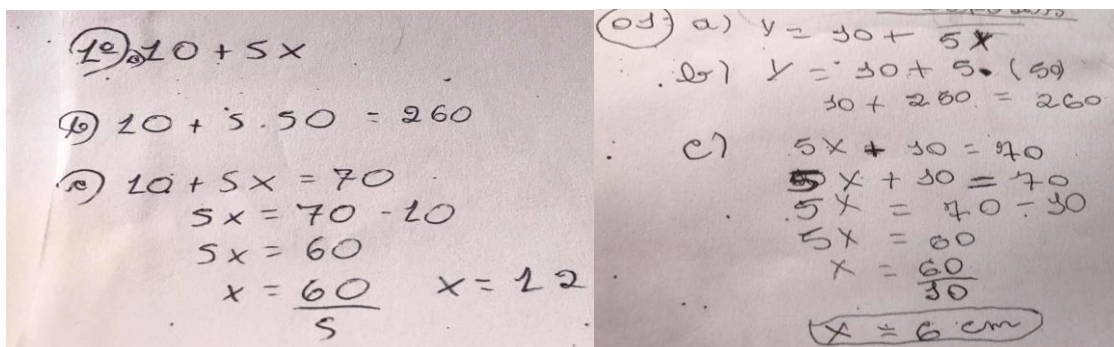 1º a) 10 + 5x
b) 10 + 5.50 = 260
c) 10 + 5x = 70
5x = 70 - 10
5x = 60
x = 60/5 x = 12
01) a) y = 10 + 5x
b) y = 10 + 5. (50)
10 + 250. = 260
c) 5x + 10 = 70
5x + 10 = 70
5x = 70 - 10
5x = 60
x = 60/10
x = 6 cm